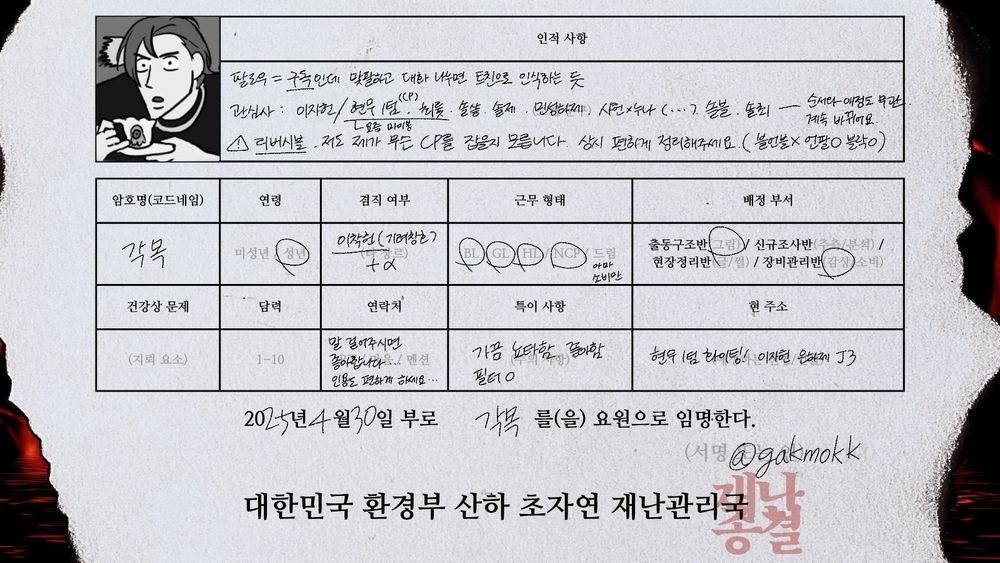 인적 사항
팔로우 = 구독인데 맞팔하고 대화 나누면 트친으로 인식하는 듯
관심사 : 이자헌 / 현무 1팀 (CP) 최릇 · 솔솔 · 솔제 · 민성하제 사언×누나 (...) 솔블 · 솔최 — 순서와 애정도 무관..
ㄴ요즘 마이붐 계속 바뀌어요
⚠ 리버시블 . 저도 제가 무슨 CP를 잡을지 모릅니다. 상시 편하게 정리해주세요. ( 블언블X 언팔O 블락O )
암호명(코드네임) 연령 겸직 여부 근무 형태 배정 부서
각목 미성년 / 성년 이작헌 (기려창호) +α BL / GL / HL / NCP / 드림 아마 소비만 출동구조반(그림) / 신규조사반(추측/분석) /
(타 장르) 현장정리반(글/썰) / 장비관리반(감상/소비)
건강상 문제 담력 연락처 특이 사항 현 주소
(지뢰 요소) 1-10 말 걸어주시면 좋아합니다... 인용도 편하게 하세요... 가끔 뇨타함 좋아함 필터O 현무 1팀 화이팅! 이자헌 은하제 J3
2025년 4월 30일 부로 각목 를(을) 요원으로 임명한다.
@gakmokk
대한민국 환경부 산하 초자연 재난관리국
재난
종결